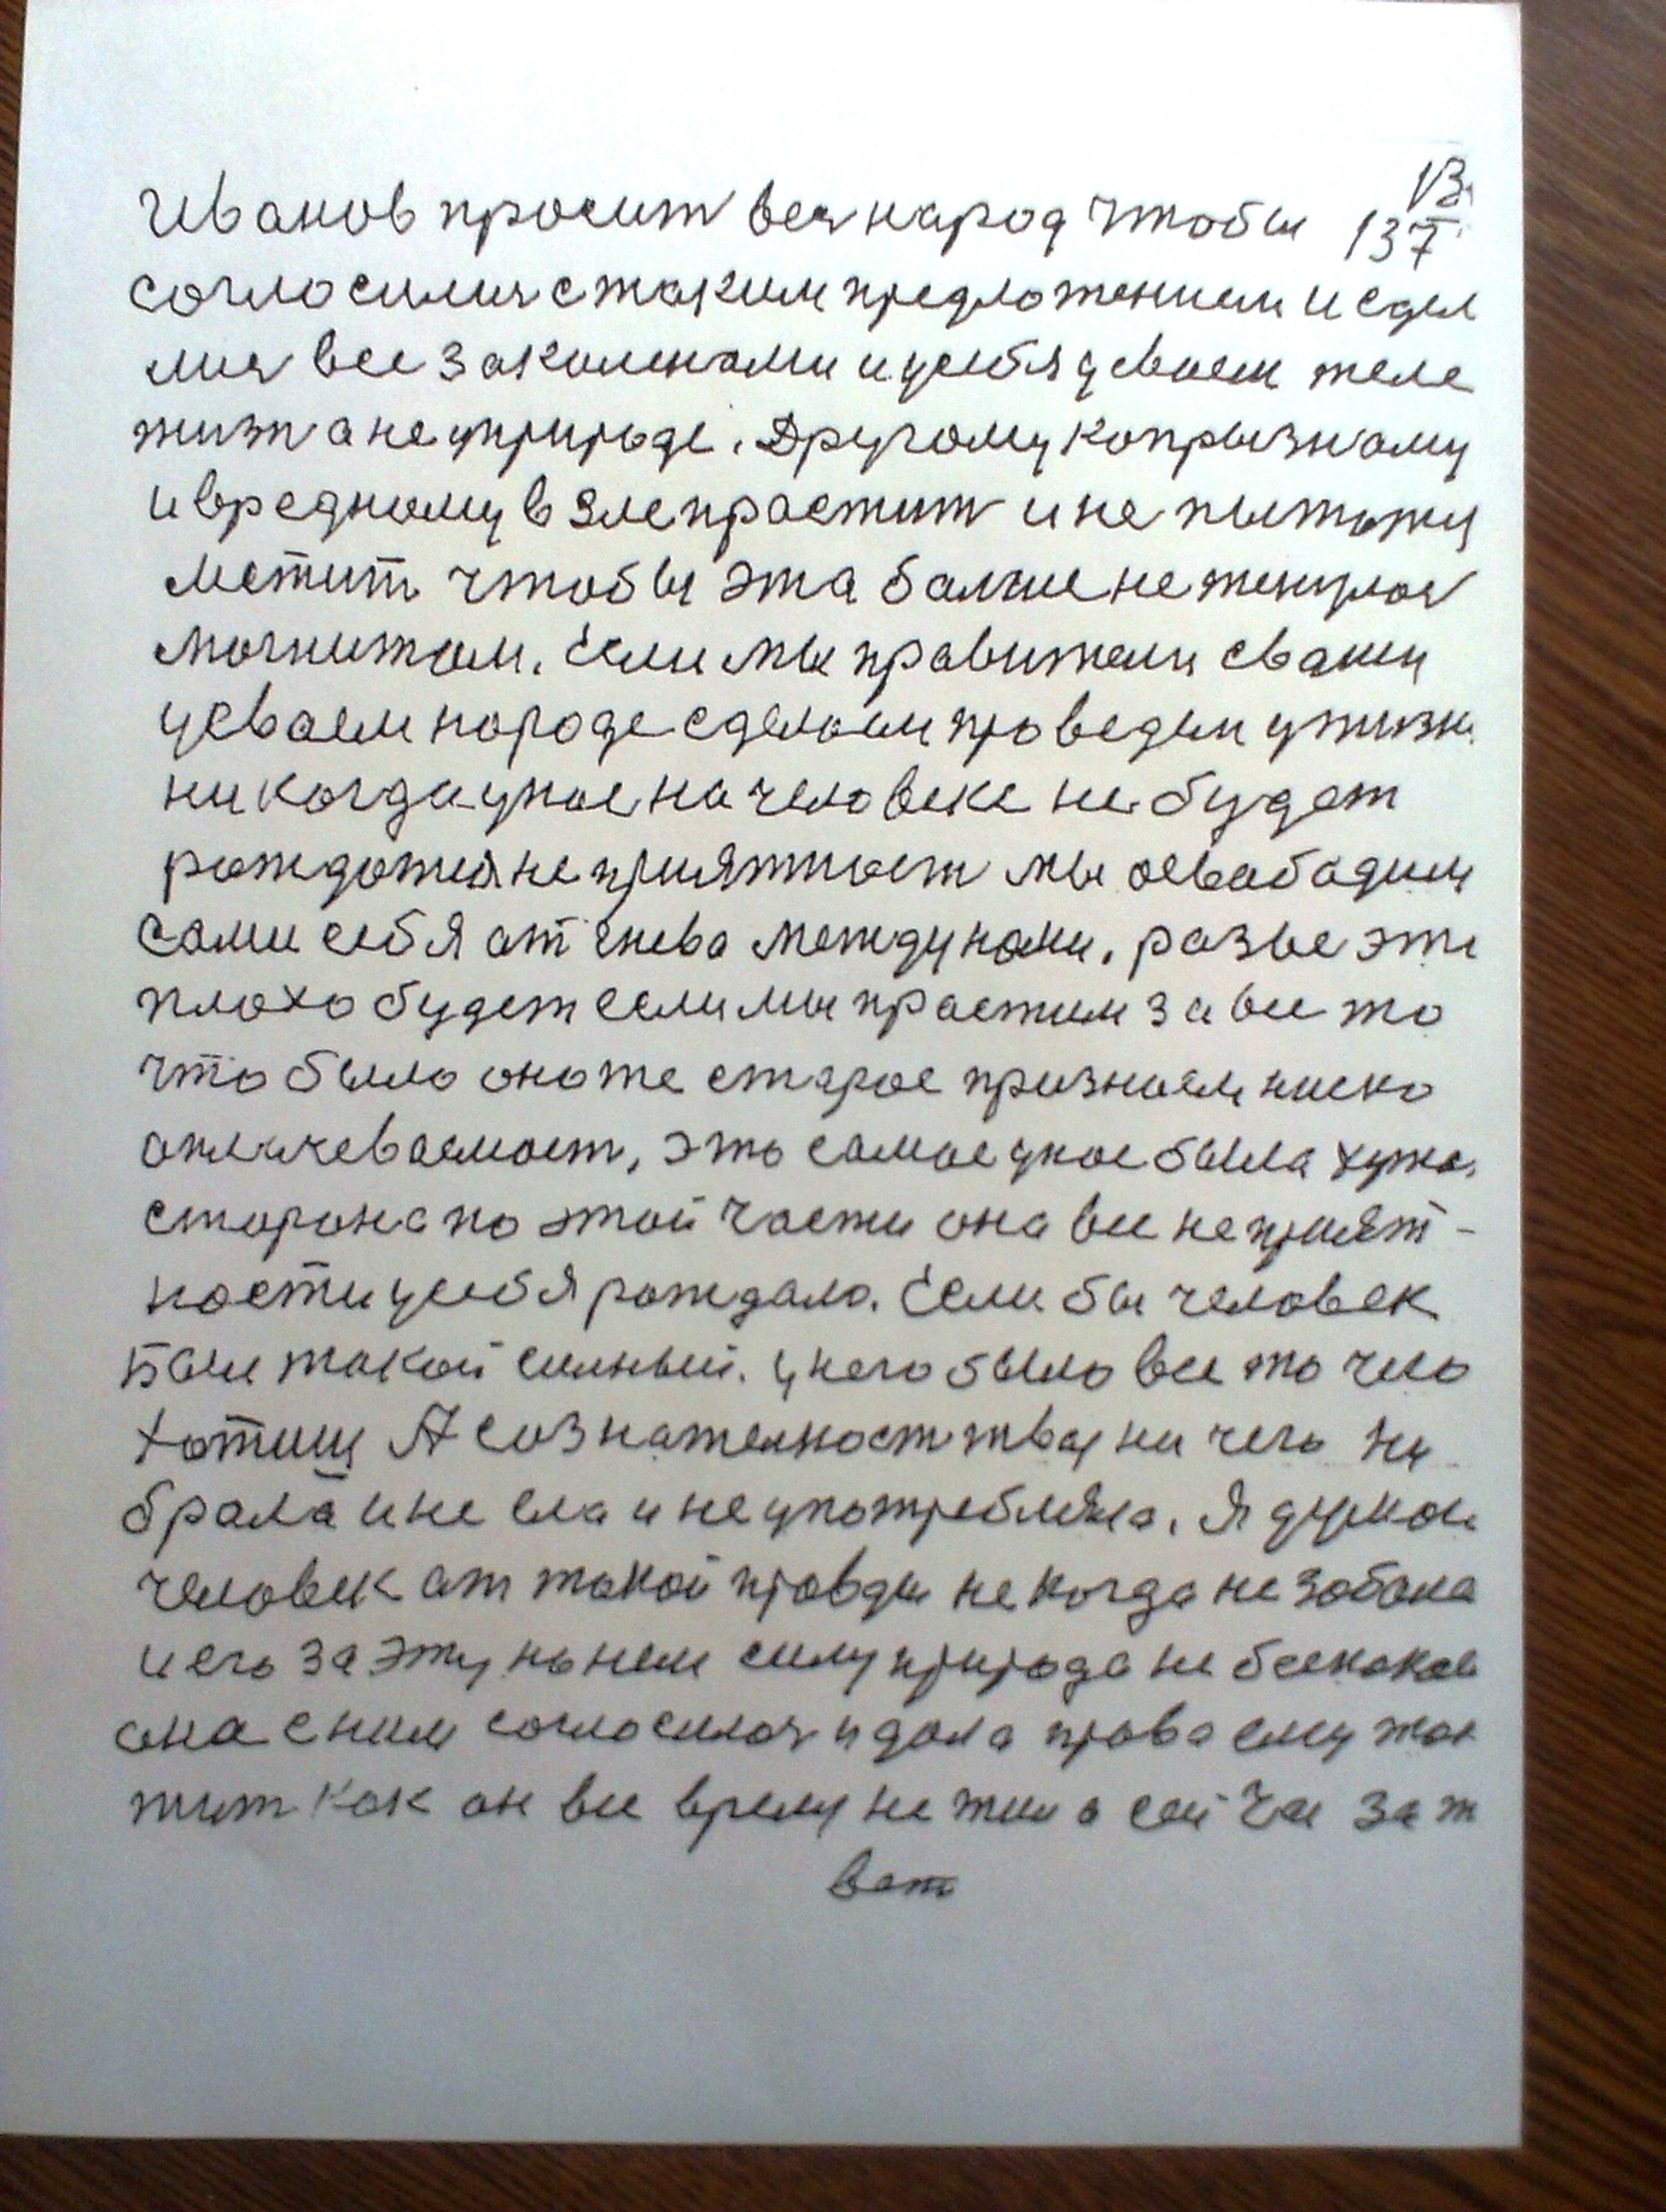 13
Иванов просит вся народ чтобы 137
согласилися с таким предложением и сдел
лися все законынами и усебя усваем теле
жизн а не уприроде. Другому копрызному
и вредному в зле прастит и не пытатся
мстит чтобы эта болше не тянулас
могнитом. Если мы правители сваим
усваем народе сделаем проведем ужизн.
никогда укое на человеке не будет
рождатся неприятност мы освабадим
сами себя от гнева между нами. разве эти
плохо будет если мы прастим за все то
что было оно же старое признаем ниско
аплачеваемост, эта самое укое была хужа.
сторона по этой части она все неприят-
ности усебя рождало. Если бы человек
был такой силный. у него было все то чего
хотиш А сознателност твая ни чего ни
брала и не ела и не употребляла. Я думаю
человек ат такой правды некогда не забола
и его за эту на нем силу природа не
она с ним согласилас и дала права ему жи
тит как он все время не жил а сейчас за ж
ват